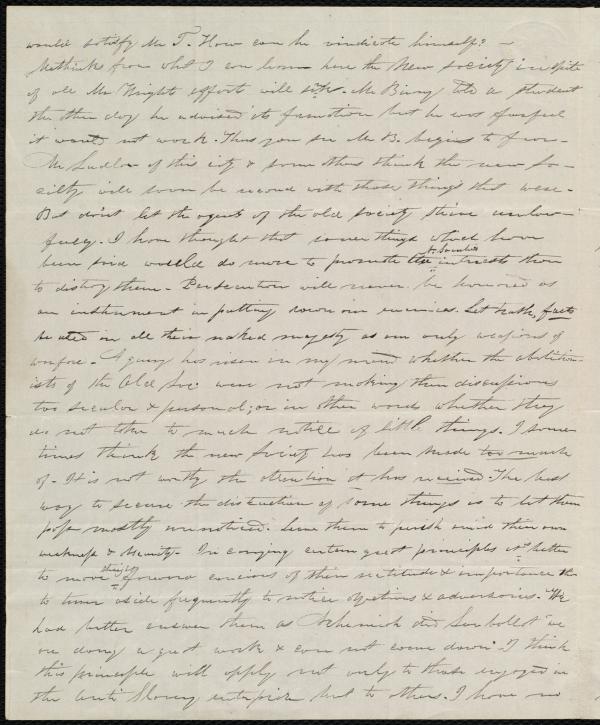 would satisfy Mr T. How can he vindicate himself? —
Methinks from what I can learn here the New society in spite
of all Mr Wright efforts will sink. Mr Birney told a student
the other day he advised its formation but he was fearful
it would not work. Thus you see Mr B. begins to fear —
Mr Ludlow of this city & some others think the new so-
ciety will soon be record with those things that were.
But don't let the agents of the old society strive unlaw-
fully. I have thought that some things which have
been said would do more to promote the intrests then
to distroy them. Persecution will never be honored as
an instrument in putting down our enemies. Let truth, facts
be used in all their naked majesty as our only weapons of
warfare. A query has risen in my mind whether the abolition-
ists of the Old Soc. were not making their discussions
too secular & personal; or in other words whether they
do not take to much notice of little things. I some
times think the new Society has been made too much
of. It is not worthy the attention it has received. The best
way to secure the distruction of some things is to let them
pass mostly unnoticed. Leave them to perish amid their own
weakness & obscurity. In carrying certain great principles it better
to move straight forward concious of their rectitude & importance than
to turn aside frequently to notice objections & adversaries. We
had better answer them as Nehemiah did Sanballat "we
are doing a great work & can not come down" I think
this principle will apply not only to those engaged in
the Anti Slavery enterprise but to others. I have no